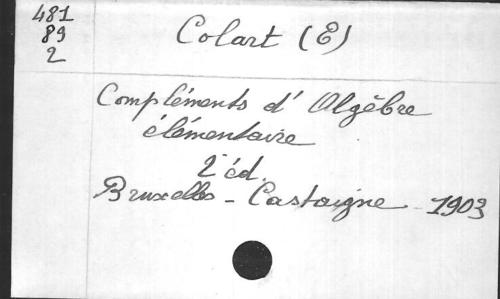 481
89
2
Colart (E)
Compléments d'Algèbre
élémentaire
2e éd.
Bruxelles - Castaigne - 1903